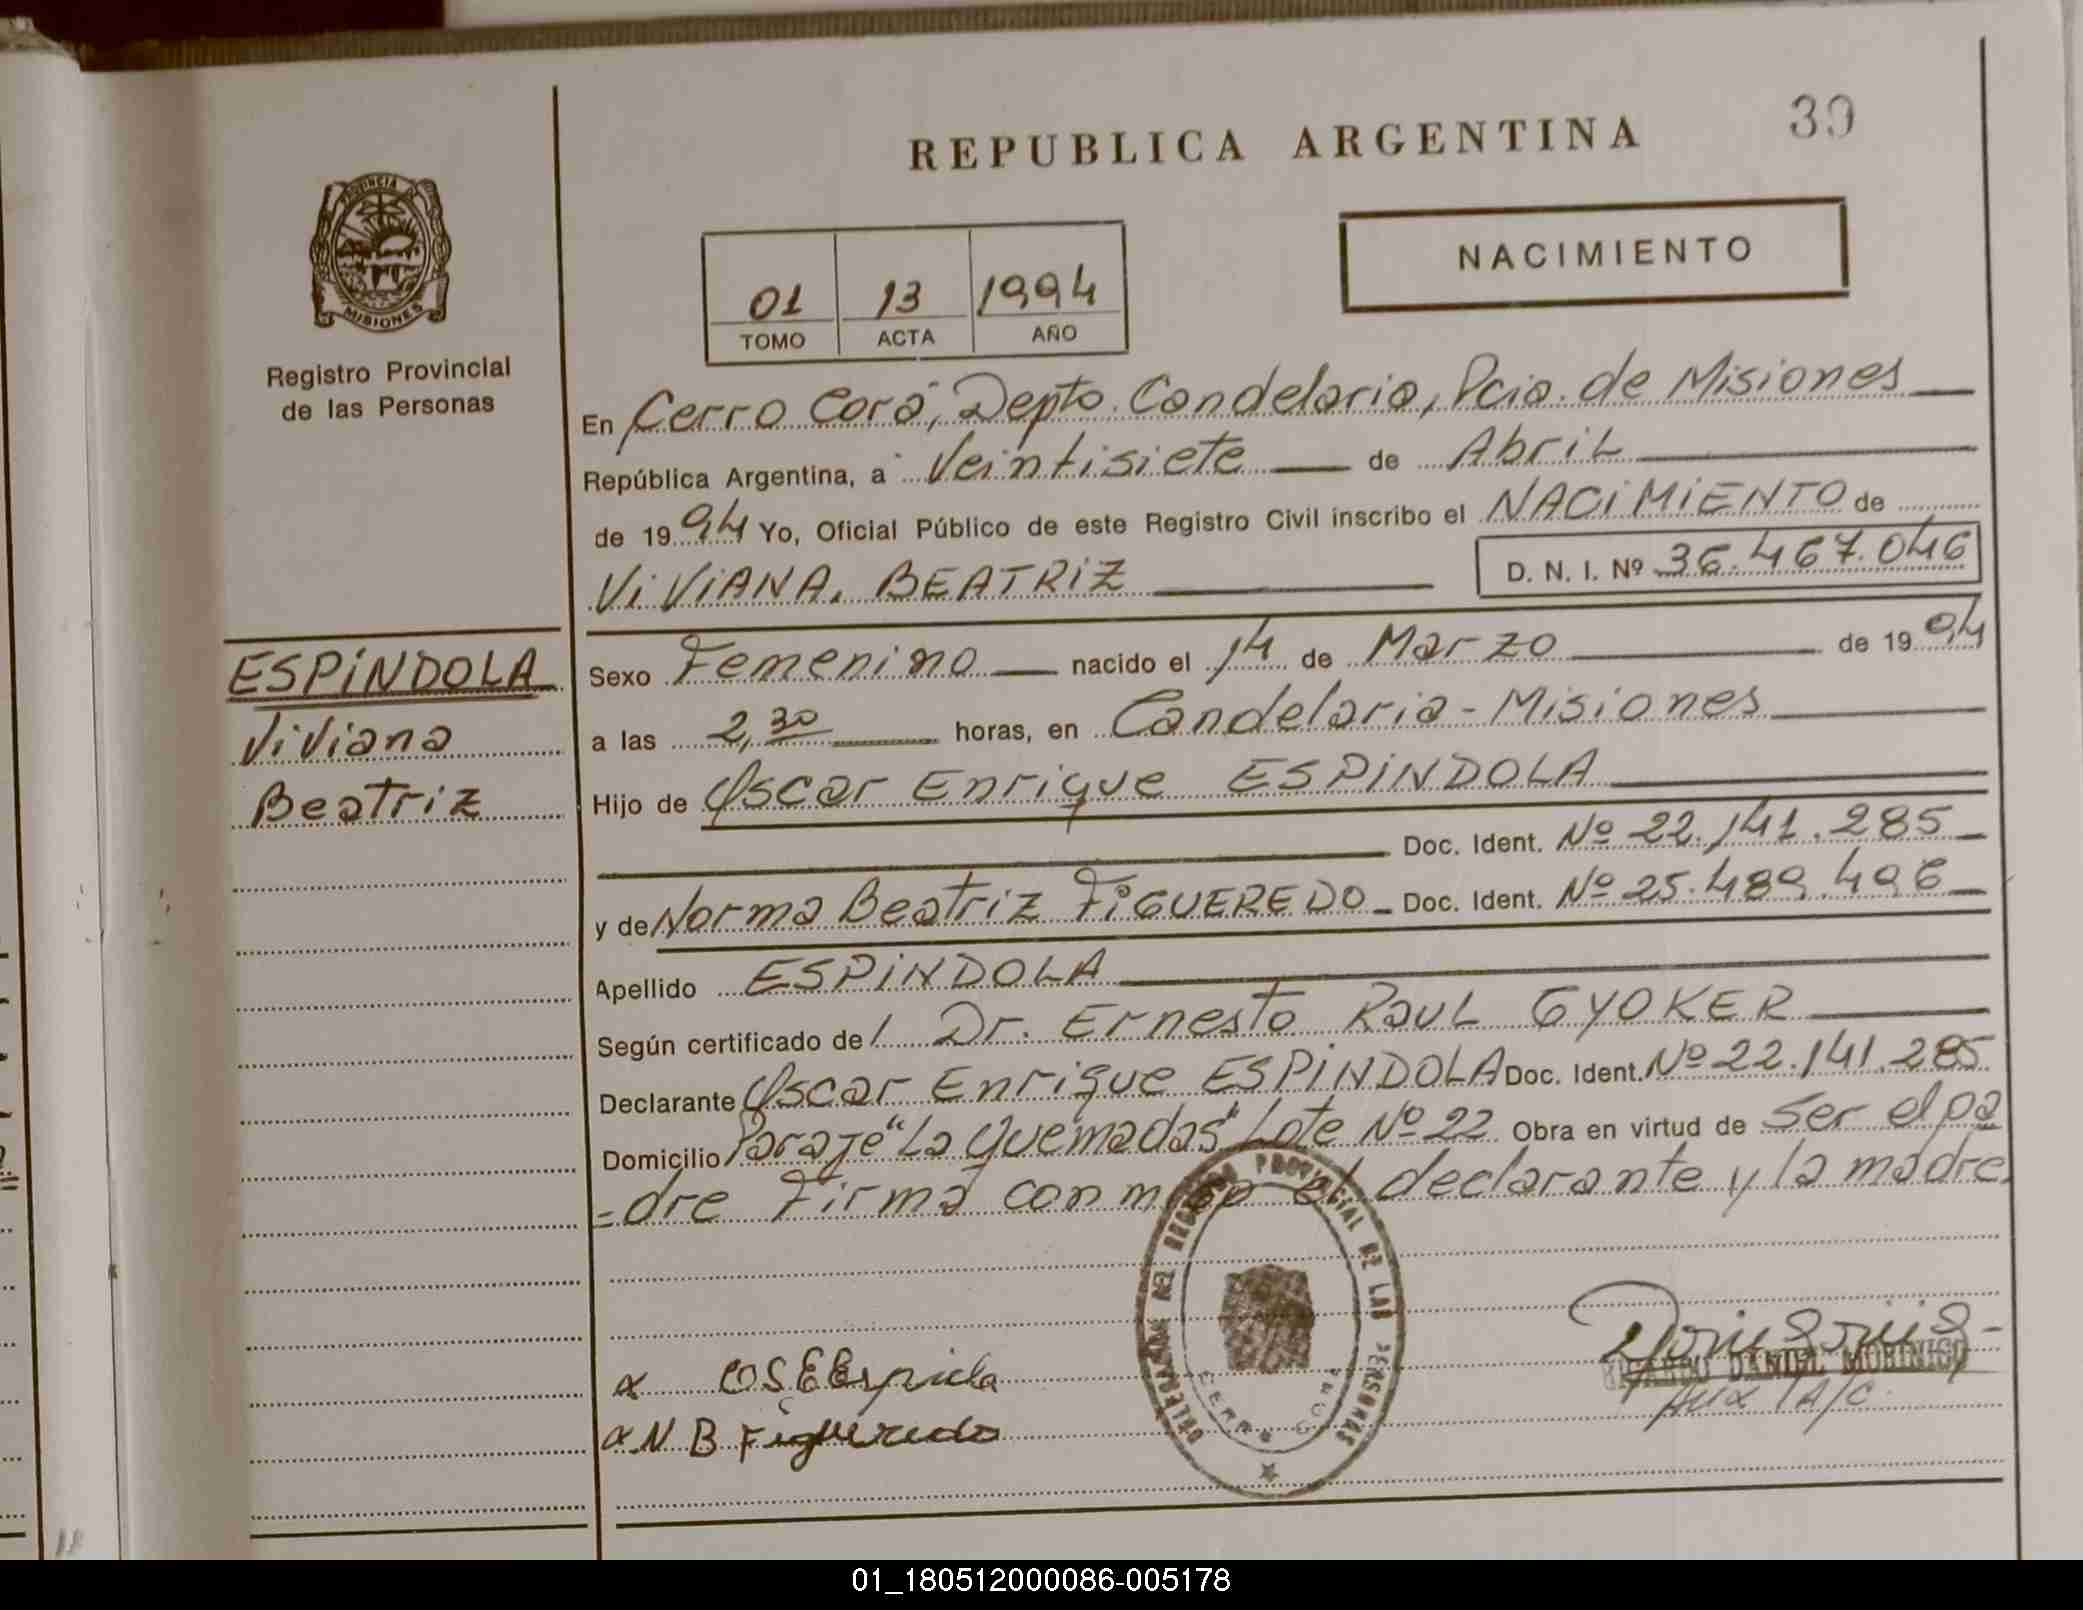 REPUBLICA ARGENTINA
39
PROVINCIA DE MISIONES
Registro Provincial
de las Personas
NACIMIENTO
01 13 1994
TOMO ACTA AÑO
En Cerro Corá, Depto. Candelaria, Pcia. de Misiones
República Argentina, a Veintisiete de Abril
de 1994 Yo, Oficial Público de este Registro Civil inscribo el NACIMIENTO de
VIVIANA. BEATRIZ D. N. I. Nº 36.467.046
ESPINDOLA
Viviana
Beatriz
Sexo Femenino nacido el 14 de Marzo de 1994
a las 2,30 horas, en Candelaria - Misiones
Hijo de Oscar Enrique ESPINDOLA
Doc. Ident. Nº 22.141.285
y de Norma Beatriz FIGUEREDO Doc. Ident. Nº 25.489.496
Apellido ESPINDOLA
Según certificado de l Dr. Ernesto Raul GYOKER
Declarante Oscar Enrique ESPINDOLA Doc. Ident. Nº 22.141.285
Domicilio Paraje "La Quemadas" Lote Nº 22 Obra en virtud de Ser el pa
=dre Firma conmigo el declarante y la madre
DELEGACION DEL REGISTRO PROVINCIAL DE LAS PERSONAS
CERRO CORA
RICARDO DANIEL MORINIGO
Aux 1 A/C
N B Figueredo
01_180512000086-005178